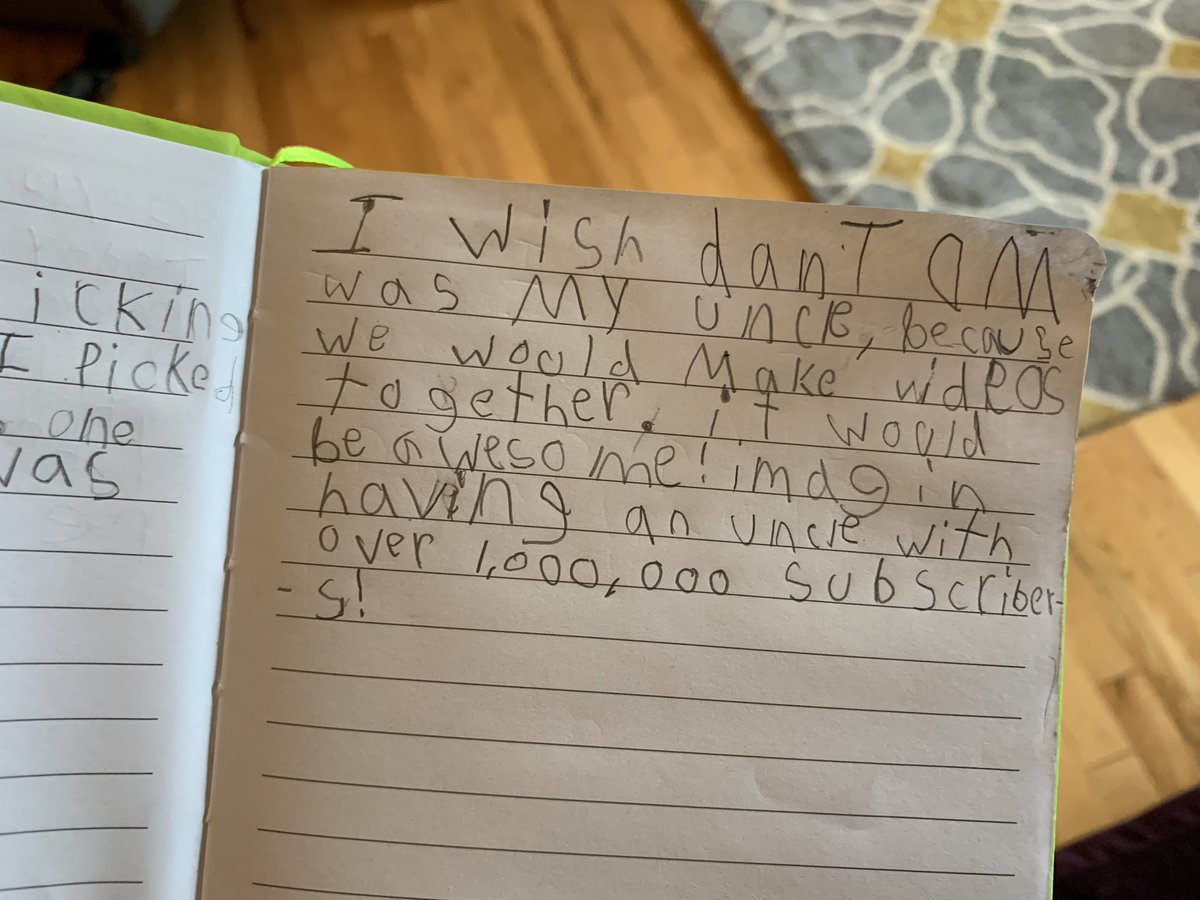 icking
I Picked
one
was
I wish danT DM
was My uncle, because
we would Make videos
together. it would
be awesome! imagin
having an uncle with
over 1,000,000 subscriber-
-s!